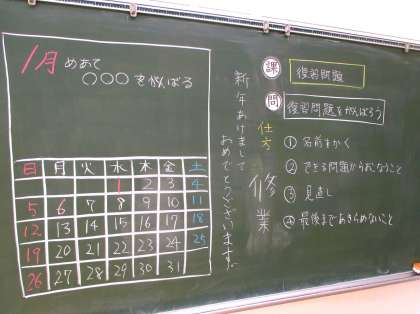 1月 めあて
○○○をがんばる
日 月 火 水 木 金 土
1 2 3 4
5 6 7 8 9 10 11
12 13 14 15 16 17 18
19 20 21 22 23 24 25
26 27 28 29 30 31
新年あけまして
おめでとうございます。
課 復習問題
問 復習問題をがんばろう
仕方
① 名前をかく
② できる問題からおこなうこと
③ 見直し
④ 最後まであきらめないこと
修業